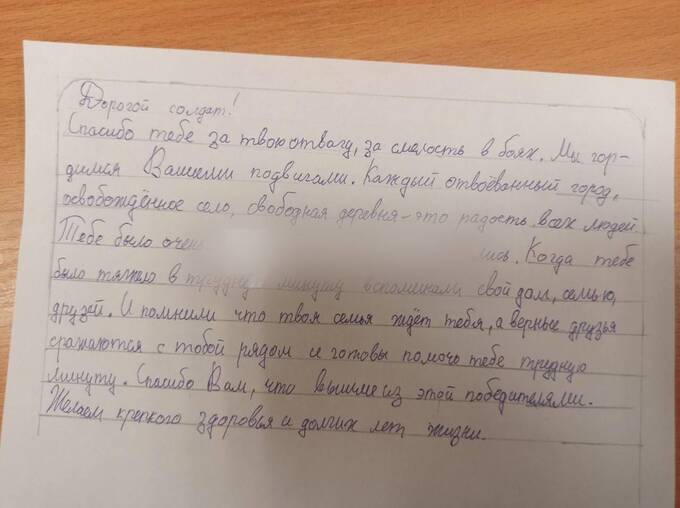 Дорогой солдат!
Спасибо тебе за твою отвагу, за смелость в боях. Мы гор-
димся Вашими подвигами. Каждый отвоёванный город,
освобождённое село, свободная деревня - это радость всех людей
Тебе было очень Когда тебе
было тяжело в трудную минуту вспоминали свой дом, семью,
друзей. И помнили что твоя семья ждёт тебя, а верные друзья
сражаются с тобой рядом и готовы помочь тебе трудную
минуту. Спасибо Вам, что вышли из этой победителями.
Желаем крепкого здоровья и долгих лет жизни.